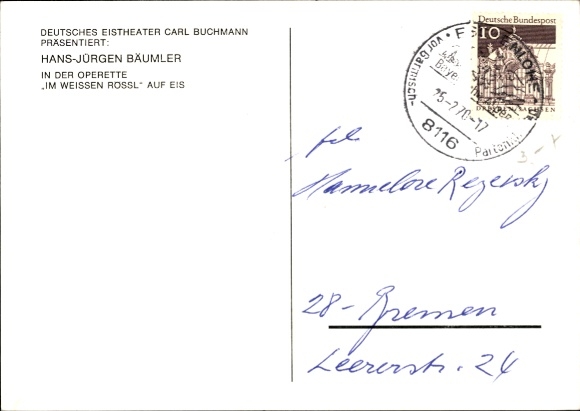 DEUTSCHES EISTHEATER CARL BUCHMANN
PRÄSENTIERT:
HANS-JÜRGEN BÄUMLER
IN DER OPERETTE
„IM WEISSEN RÖSSL" AUF EIS
Deutsche Bundespost
10
DRESDEN/SACHSEN
vor Garmisch-
Partenk.
25-2.70-17
8116
Hannelore
28-Bremen
Leererstr. 24
3.-